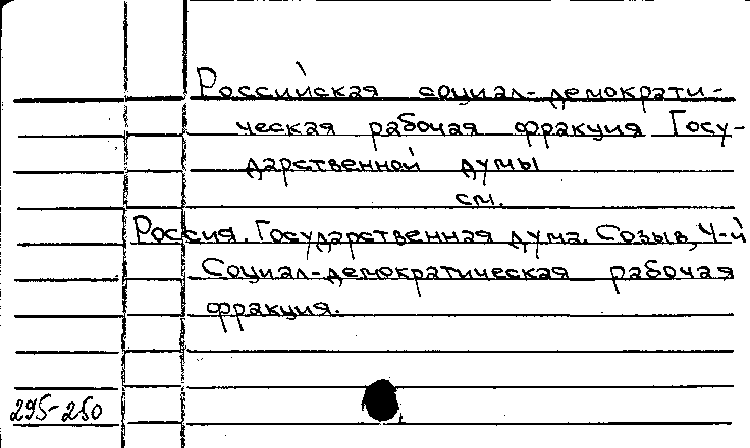 Российская социал-демократи-
ческая рабочая фракция Госу-
дарственной думы
см.
Россия. Государственная дума. Созыв, 4-й
Социал-демократическая рабочая
фракция.
295-250